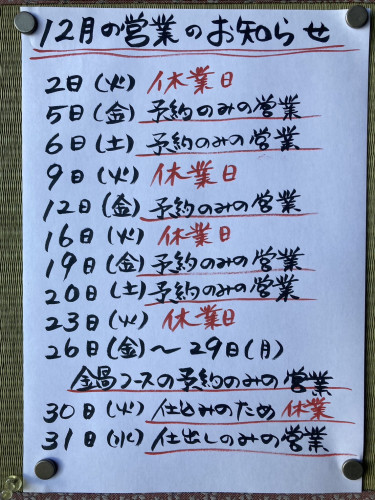 12月の営業のお知らせ
2日(火) 休業日
5日(金) 予約のみの営業
6日(土) 予約のみの営業
9日(火) 休業日
12日(金) 予約のみの営業
16日(火) 休業日
19日(金) 予約のみの営業
20日(土) 予約のみの営業
23日(火) 休業日
26日(金)〜29日(月)
鍋コースの予約のみの営業
30日(火) 仕込みのため 休業
31日(水) 仕出しのみの営業